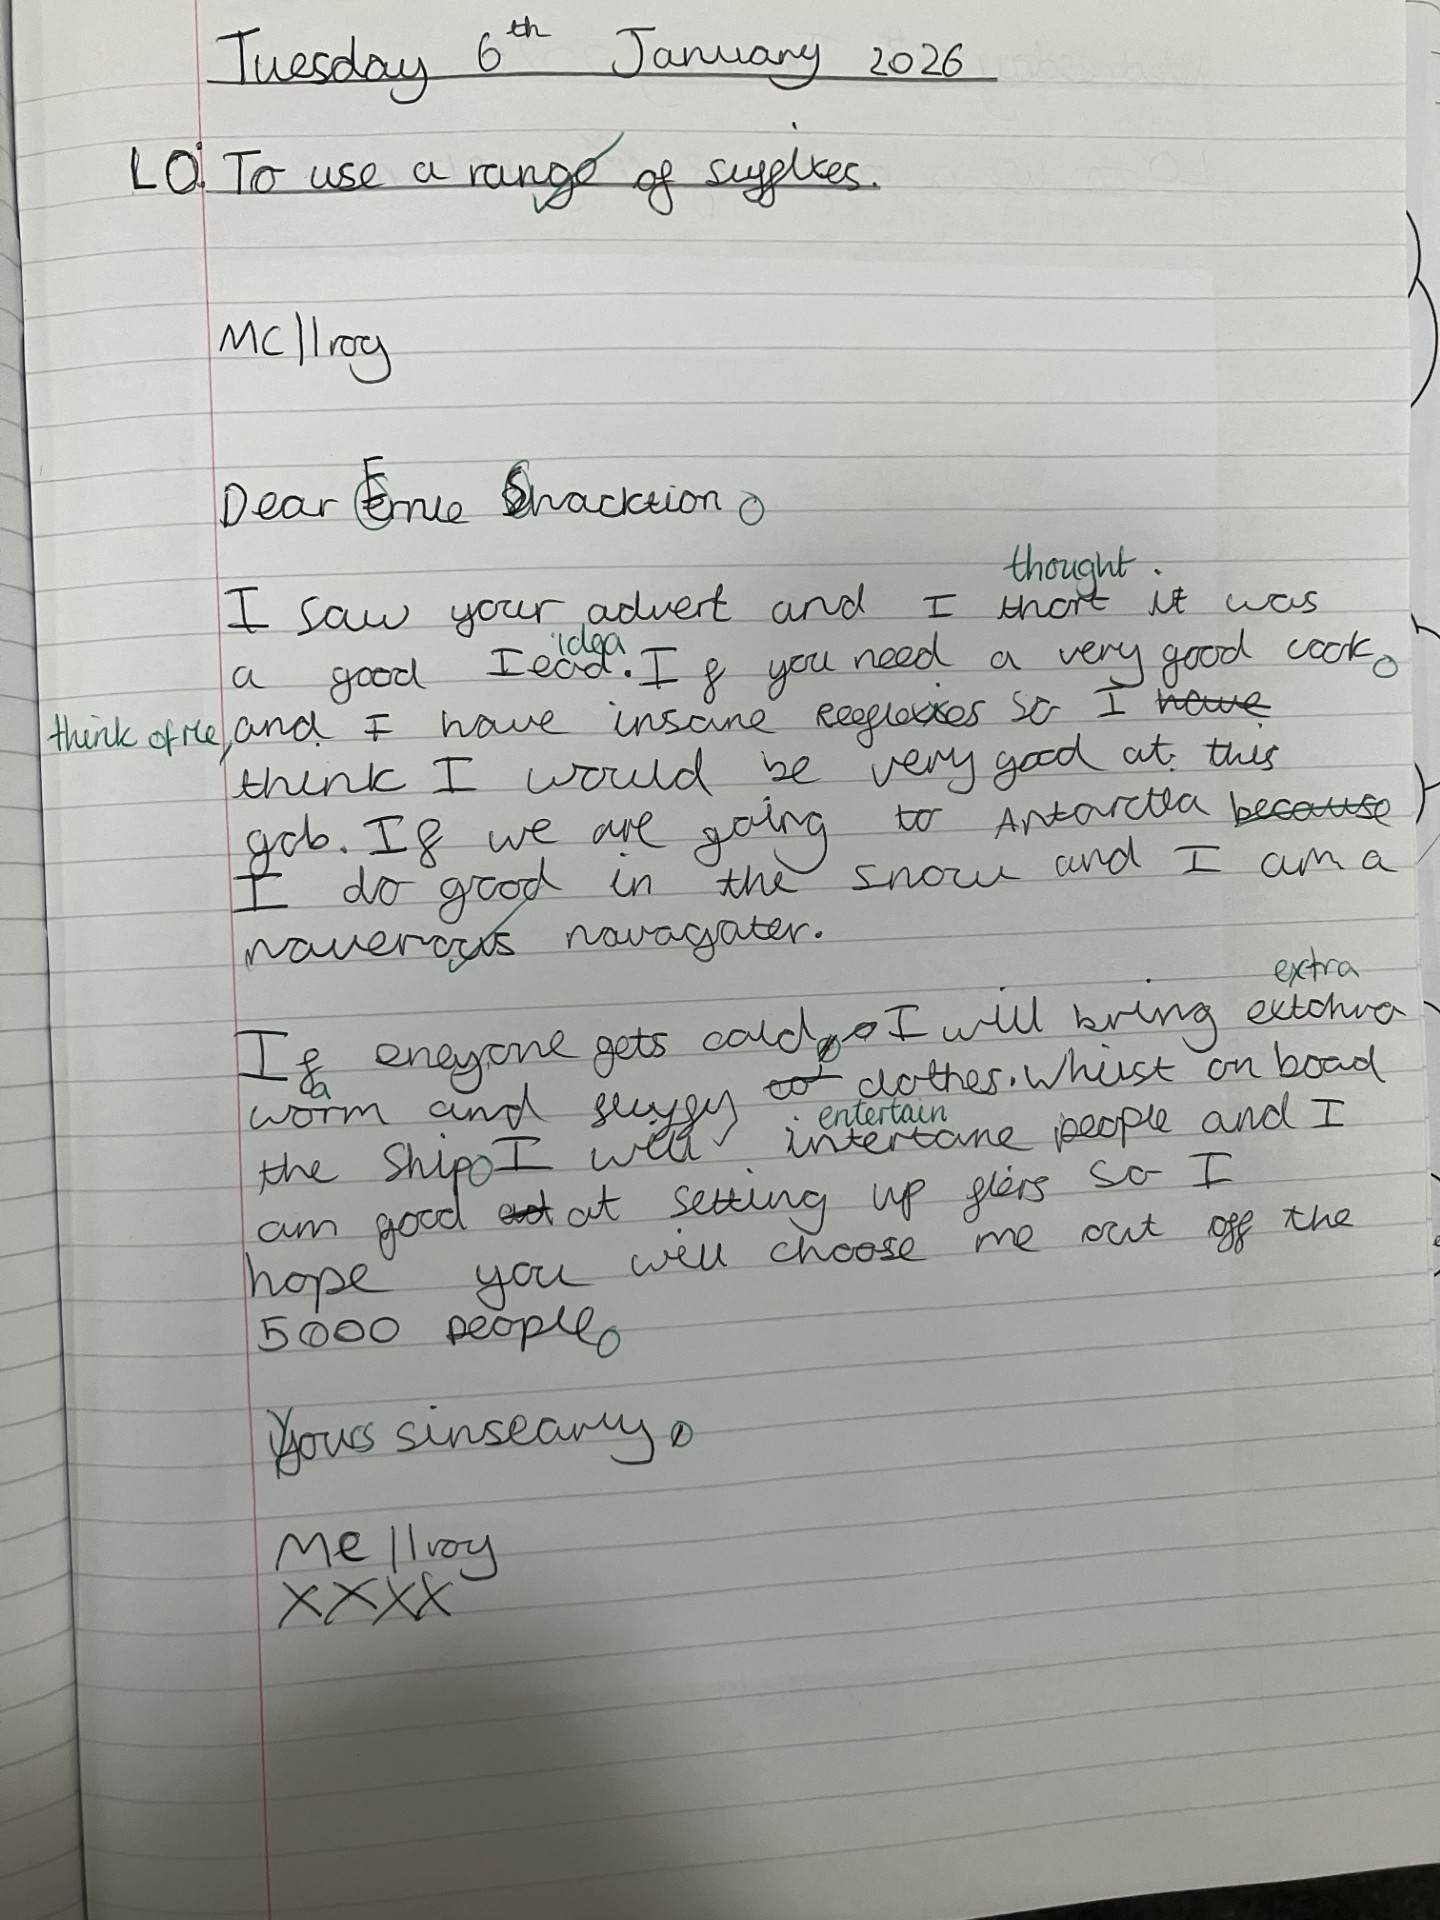 Tuesday 6th January 2026
LO: To use a range of suffixes.
MC Ilroy
Dear Ernie Shacktion
thought.
I saw your advert and I thort it was
idea
a good Iead. If you need a very good cook
think of me, and I have insane Reeflexies so I have
think I would be very good at this
gob. If we are going to Antarctia because
I do good in the snow and I am a
naverous navagater.
extra
If eneyone gets cold I will bring extchra
a
worm and fluffy clothes. Whilst on boad
entertain
the Ship I will intertane people and I
am good at setting up fiers so I
hope you will choose me out off the
5000 people
Yours sinsearly
Mc Ilroy
XXXX